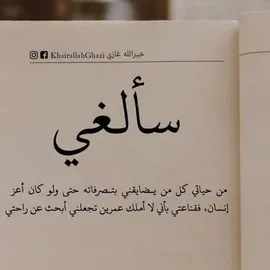 KhairallahGhazi خيرالله غازي
سألغي
من حياتي كل من يضايقني بتصرفاته حتى ولو كان أعز
إنسان، فقناعتي بأني لا أملك عمرين تجعلني أبحث عن راحتي